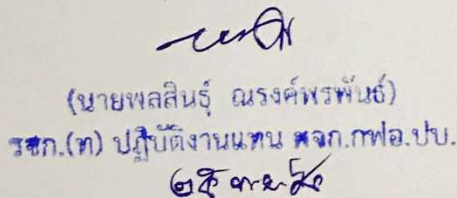 (นายพลสินธุ์ ณรงค์พรพันธ์)
รจก.(ท) ปฏิบัติงานแทน ผจก.กฟอ.ปบ.